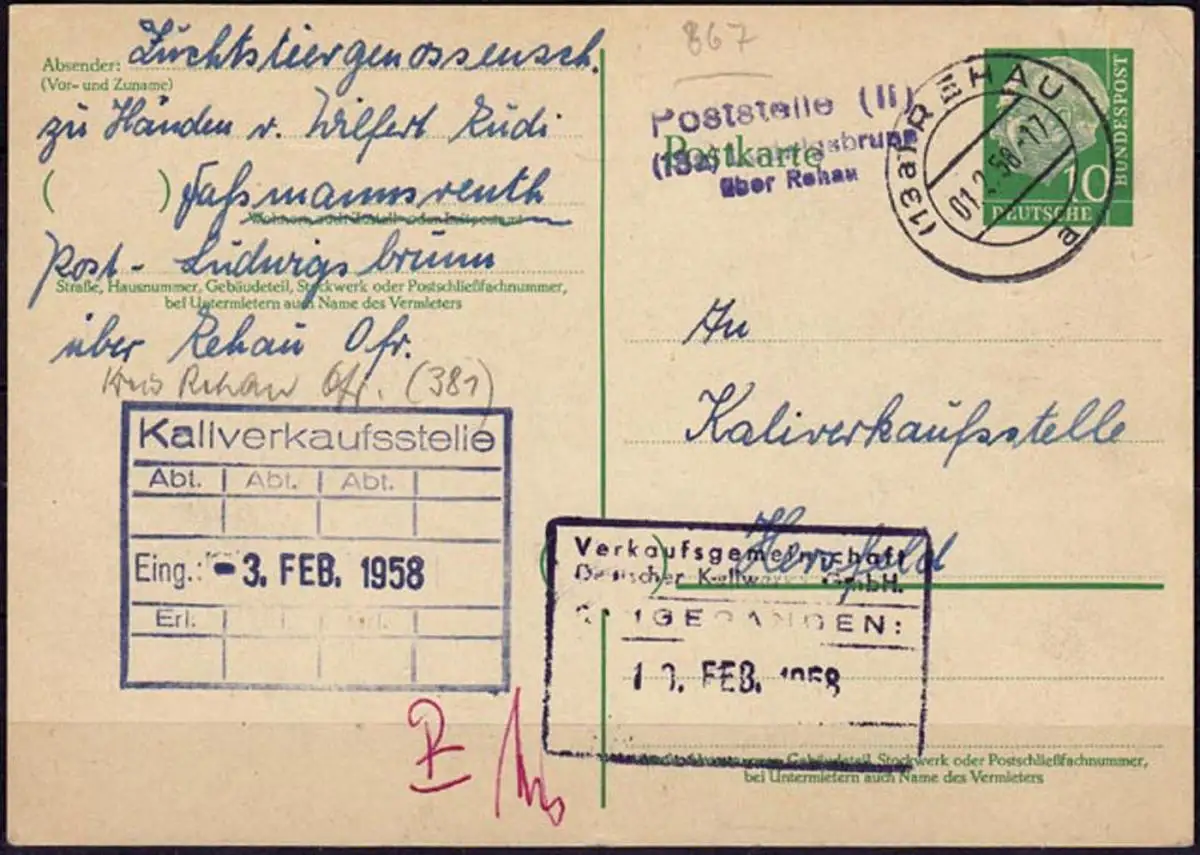 Absender: Zuchtstiergenossensch.
(Vor- und Zuname)
zu Händen v. Wilfert Rudi
( ) Faßmannsreuth
Post - Ludwigsbrunn
Straße, Hausnummer, Gebäudeteil, Stockwerk oder Postschließfachnummer,
bei Untermietern auch Name des Vermieters
über Rehau Ofr.
Kreis Rehau Ofr. (381)
Kaliverkaufsstelle
Abt. Abt. Abt.
Eing.: - 3. FEB. 1958
Erl.
867
Poststelle (II)
Postkarte
(13a) Ludwigsbrunn
über Rehau
(13a) REHAU
01.2.58.-17
a
10
DEUTSCHE
BUNDESPOST
An
Kaliverkaufsstelle
( ) Hersfeld
Verkaufsgemeinschaft
Deutscher Kaliwerke GmbH.
EINGEGANGEN:
FEB. 1958
Gebäudeteil, Stockwerk oder Postschließfachnummer,
bei Untermietern auch Name des Vermieters